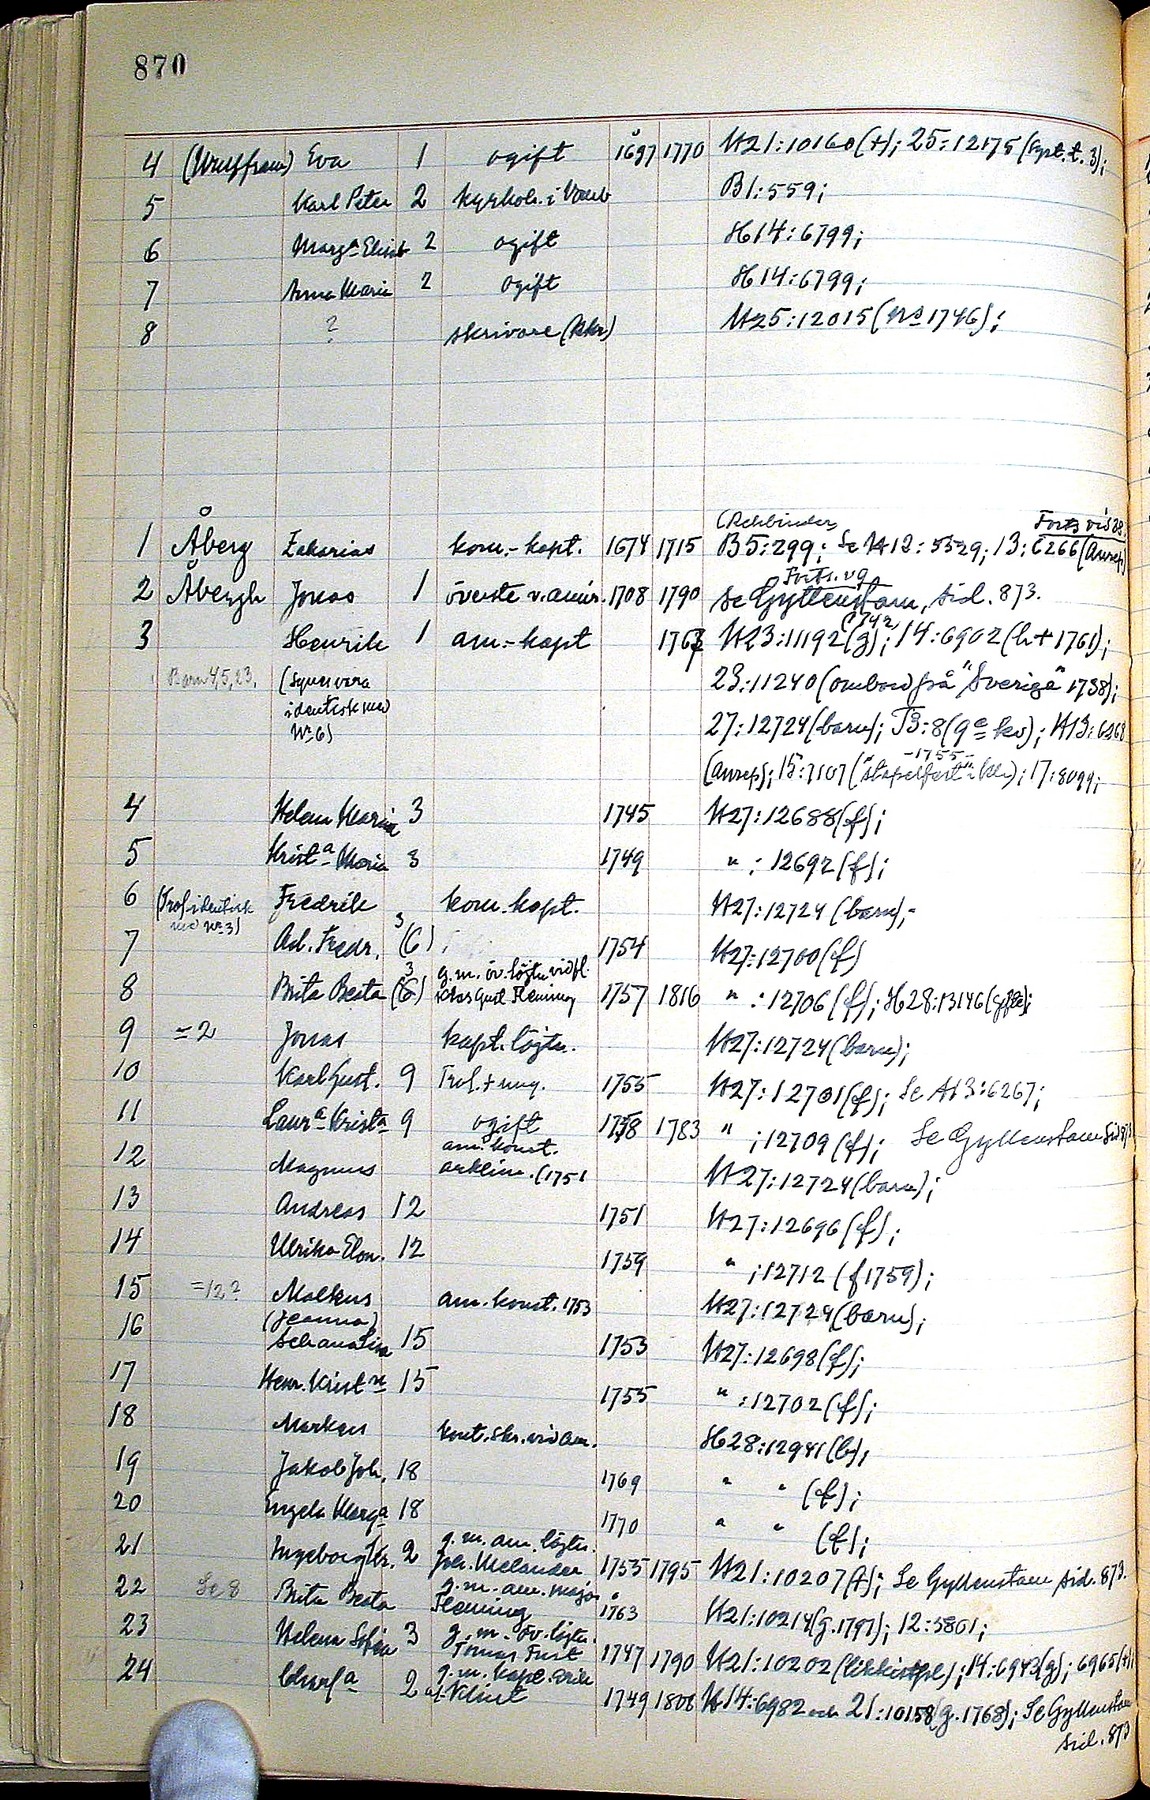 870
4 (Wulffram) Eva 1 ogift 1697 1770 A21:10160(+); 25:12175 (Cypt. t. 3);
5 Karl Peter 2 kyrkoh. i B1:559;
6 Marga Elisab 2 ogift H14:6799;
7 Anna Maria 2 ogift H14:6799;
8 ? skrivare (Kkr) A25:12015 (No 1746);
(Rehbinder Forts vis 28.
1 Åberg Zakarias kom.-kapt. 1674 1715 B5:299; Se A12:5529; 13:6266 (Anrep)
Forts. vg
2 Åbergh Jonas 1 överste v. amir. 1708 1790 se Gyllenstam, sid. 873.
1742
3 Henrik 1 am.-kapt 1763 A23:11192 (g); 14:6902 (h + 1761);
Barn 4,5,23. (synes vara 23:11240 (ombord på "Sverige" 1738);
identisk med
No 6) 27:12724 (barn); J3:8 (9e kv); A13:6268
-1755-
(Anrep); 15:7107 ("stapelfest" i Kkr); 17:8099;
4 Helena Maria 3 1745 A27:12688 (f);
5 Krista Maria 3 1749 " : 12692 (f);
6 (Trol. identisk Fredrik kom. kapt. A27:12724 (barn);
med No 3)
7 Ad. Fredr. 3 (6) 1754 A27:12700 (f)
g. m. öv. löjtn. vid fl.
8 Brita Beata 3 (6) Klas Gust Fleming 1757 1816 " : 12706 (f); H28:13146 (gifte);
9 = 2 Jonas kapt. löjtn. A27:12724 (barn);
10 Karl Gust. 9 Trol. + ung. 1755 A27:12701 (f); Se A13:6267;
11 Laura Krista 9 ogift 1758 1783 " ; 12709 (f); Se Gyllenstam Sid 873
am. konst.
12 Magnus arklim. (1751 A27:12724 (barn);
13 Andreas 12 1751 A27:12696 (f);
14 Ulrika Elon. 12 1759 " ; 12712 (f 1759);
15 =12? Malkus am. konst. 1753 A27:12724 (barn);
(Jeanna)
16 15 1753 A27:12698 (f);
17 Henr. Krist 15 1755 " : 12702 (f);
18 Markus kont. skr. vid am. H28:12941 (b);
19 Jakob Joh. 18 1769 " " (f);
20 Ingela Marga 18 1770 " " (f);
g. m. am. löjtn.
21 Ingeborg Kr. 2 Joh. Melander 1753 1795 A21:10207 (+); Se Gyllenstam sid. 873.
g. m. am. major
22 Se 8 Brita Beata Fleming 1763 A21:10214 (g. 1797); 12:5801;
g. m. öv. löjtn.
23 Helena Sofia 3 Tomas Fust 1747 1790 A21:10202 14:6943 (g); 6965 (+);
g. m. kapt. Erik
24 2 af Klint 1749 1808 A14:6982 och 21:10158 (g. 1768); Se Gyllenstam
sid. 873